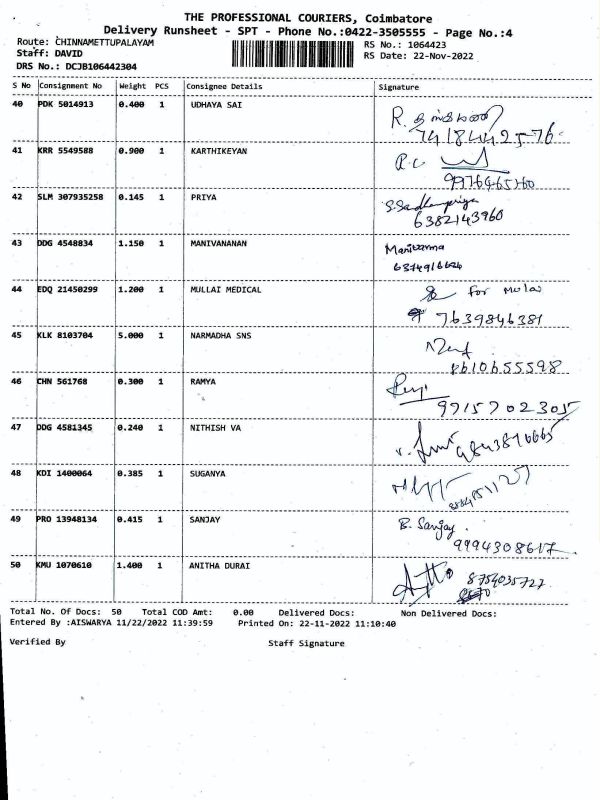 THE PROFESSIONAL COURIERS, Coimbatore
Delivery Runsheet - SPT - Phone No.:0422-3505555 - Page No.:4
Route: CHINNAMETTUPALAYAM
Staff: DAVID
DRS No.: DCJB106442304
RS No.: 1064423
RS Date: 22-Nov-2022
S No Consignment No Weight PCS Consignee Details Signature
40 PDK 5014913 0.400 1 UDHAYA SAI R.
7418442576
41 KRR 5549588 0.900 1 KARTHIKEYAN
42 SLM 307935258 0.145 1 PRIYA
6382143960
43 DDG 4548834 1.150 1 MANIVANANAN
44 EDQ 21450299 1.200 1 MULLAI MEDICAL for Mulai
7639846381
45 KLK 8103704 5.000 1 NARMADHA SNS
46 CHN 561768 0.300 1 RAMYA
9715702305
47 DDG 4581345 0.240 1 NITHISH VA
48 KDI 1400064 0.385 1 SUGANYA
49 PRO 13948134 0.415 1 SANJAY B. Sanjay
9994308617
50 KMU 1070610 1.400 1 ANITHA DURAI 8754035727
Total No. Of Docs: 50 Total COD Amt: 0.00 Delivered Docs: Non Delivered Docs:
Entered By :AISWARYA 11/22/2022 11:39:59 Printed On: 22-11-2022 11:10:40
Verified By Staff Signature